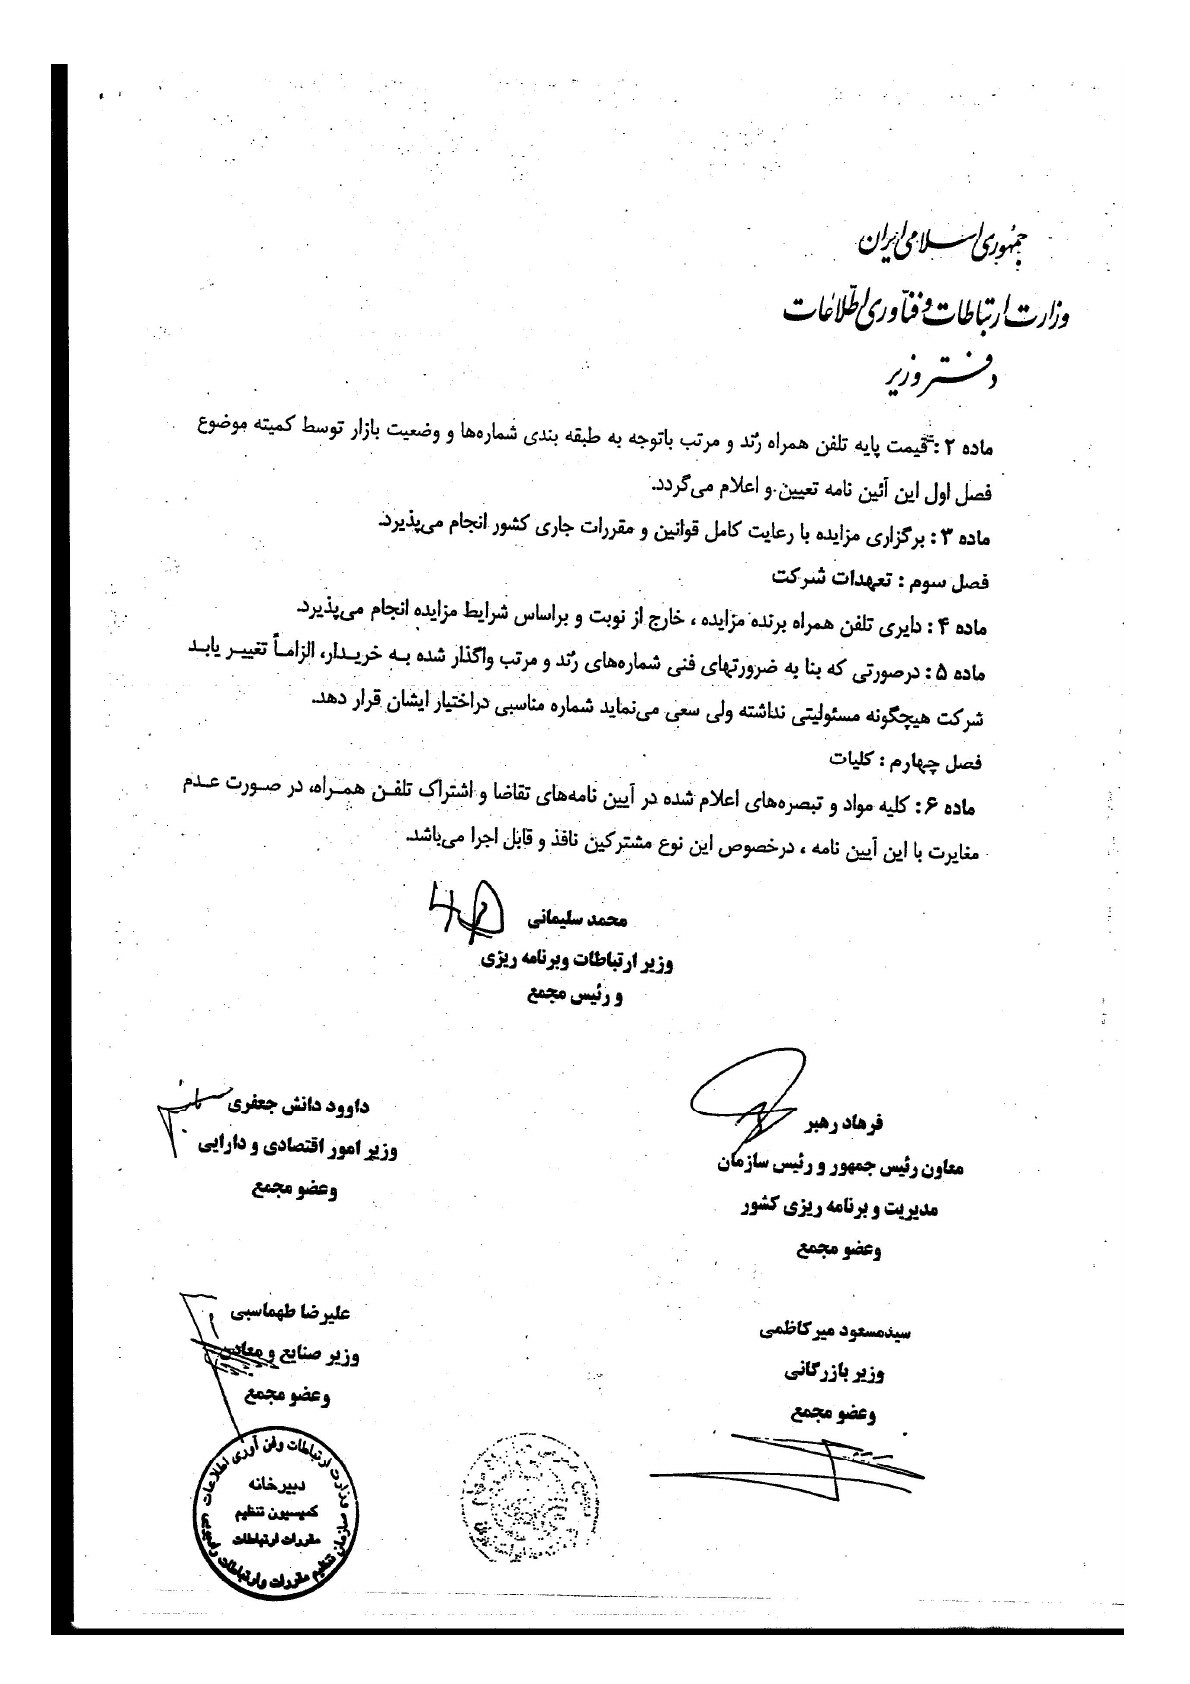 جمهوری اسلامی ایران
وزارت ارتباطات و فنآوری اطلاعات
دفتر وزیر
ماده ۲ : قیمت پایه تلفن همراه رُند و مرتب باتوجه به طبقه بندی شماره‌ها و وضعیت بازار توسط کمیته موضوع
فصل اول این آئین نامه تعیین و اعلام می‌گردد.
ماده ۳ : برگزاری مزایده با رعایت کامل قوانین و مقررات جاری کشور انجام می‌پذیرد.
فصل سوم : تعهدات شرکت
ماده ۴ : دایری تلفن همراه برنده مزایده ، خارج از نوبت و براساس شرایط مزایده انجام می‌پذیرد.
ماده ۵ : درصورتی که بنا به ضرورتهای فنی شماره‌های رُند و مرتب واگذار شده به خریدار، الزاماً تغییر یابد
شرکت هیچگونه مسئولیتی نداشته ولی سعی می‌نماید شماره مناسبی دراختیار ایشان قرار دهد.
فصل چهارم : کلیات
ماده ۶ : کلیه مواد و تبصره‌های اعلام شده در آیین نامه‌های تقاضا و اشتراک تلفن همراه، در صورت عدم
مغایرت با این آیین نامه ، درخصوص این نوع مشترکین نافذ و قابل اجرا می‌باشد.
محمد سلیمانی
وزیر ارتباطات وبرنامه ریزی
و رئیس مجمع
داوود دانش جعفری
وزیر امور اقتصادی و دارایی
وعضو مجمع
فرهاد رهبر
معاون رئیس جمهور و رئیس سازمان
مدیریت و برنامه ریزی کشور
وعضو مجمع
علیرضا طهماسبی
وزیر صنایع و معادن
وعضو مجمع
سیدمسعود میرکاظمی
وزیر بازرگانی
وعضو مجمع
وزارت ارتباطات وفن آوری اطلاعات
دبیرخانه
کمیسیون تنظیم
مقررات ارتباطات
سازمان تنظیم مقررات وارتباطات رادیویی